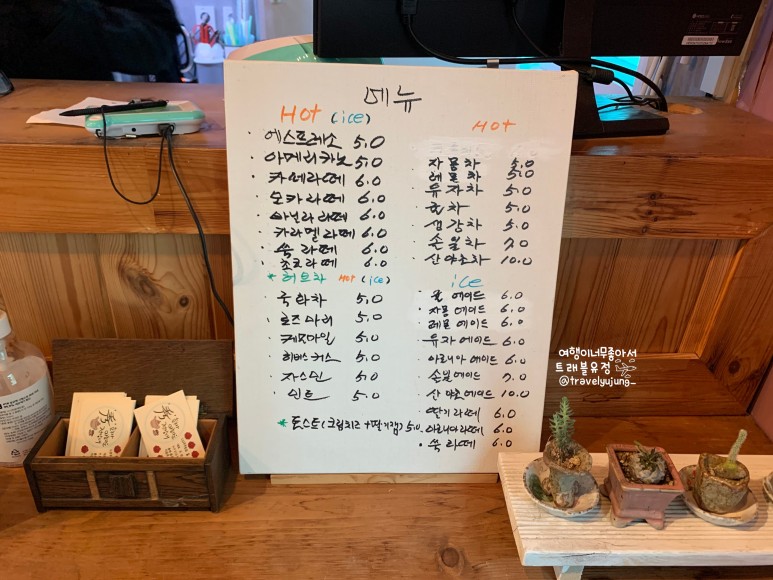 메뉴
HOt (ice)
에스프레소 5.0
아메리카노 5.0
카페라떼 6.0
모카라떼 6.0
바닐라라떼 6.0
카라멜라떼 6.0
쑥라떼 6.0
초코라떼 6.0
*허브차 HOt (ice)
국화차 5.0
로즈마리 5.0
케모마일 5.0
히비스커스 5.0
자스민 5.0
민트 5.0
*토스트(크림치즈+딸기잼) 5.0
HOt
자몽차 5.0
레몬차 5.0
유자차 5.0
생강차 5.0
손월차 7.0
산야초차 10.0
ice
자몽에이드 6.0
레몬에이드 6.0
유자에이드 6.0
아로니아에이드 6.0
에이드 7.0
산야초에이드 10.0
딸기라떼 6.0
아로니아라떼 6.0
쑥라떼 6.0
여행이너무좋아서
트래블유정
@travelyujung_